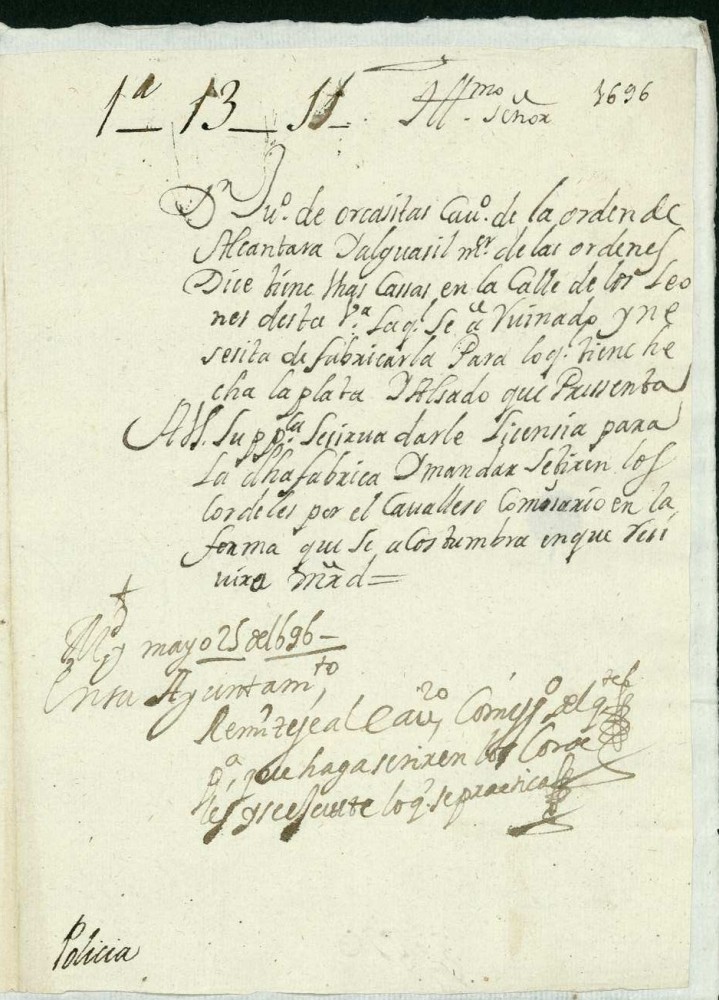 1ª 13 11. Illmo Señor 1696
Dn Juº. de orcasitas Cauº. de la orden de
Alcantara Yalguasil mºr. de las ordenes
Dice tiene Vnas Cassas en la Calle de los Leo
nes desta Vª. Laq̃. Se a Ruinado y ne
sesita de fabricarla Para loq. tiene he
cha la planta YAlsado que Pressenta
AVI. Suppca Sesirua darle Licensia para
La dha fabrica Ymandar Setiren los
Cordeles por el Cauallero Comisario en la
forma que Se acostumbra enque Resi
uira mrd=
Md y mayo 25 de 1696_
Ensu Ayuntamto,
Remitese al Cauro, Comissº del qtel
pª, que haga se tiren los Corde
les y se ejecute loq. se practica
Policia